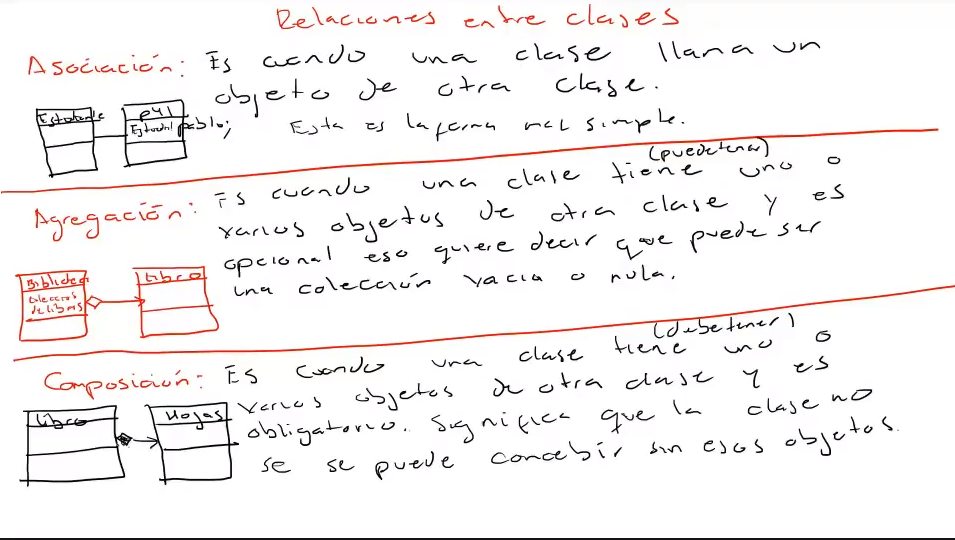 Relaciones entre clases
Asociación: Es cuando una clase llama un
objeto de otra clase.
Esta es la forma mas simple.
Estudiante
P41
Estudi pablo;
Agregación: Es cuando una clase tiene (puede tener) uno o
varios objetos de otra clase y es
opcional eso quiere decir que puede ser
una colección vacia o nula.
Biblioteca
colección
de libros
Libro
Composición: Es cuando una clase tiene (debe tener) uno o
varios objetos de otra clase y es
obligatorio. Significa que la clase no
se se puede concebir sin esos objetos.
Libro
Hojas